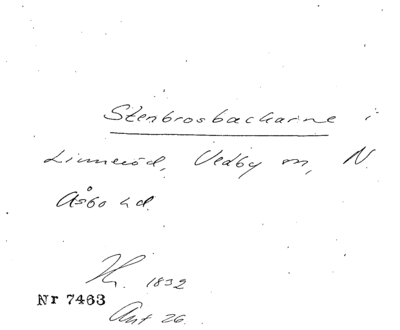 Stenbrosbackarne i
Linneröd, Vedby sn, N.
Åsbo hd.
1832
Nr 7463
Akt 26.